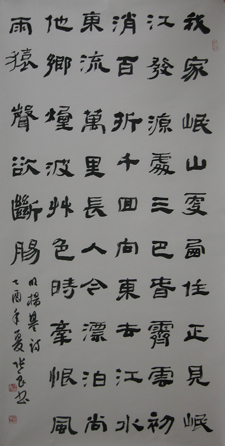 我家岷山更西住正見岷
江發源處三巴春霽雪初
消百折千回向東去江水
東流萬里長人今漂泊尚
他鄉煙波艸色時牽恨風
雨猿聲欲斷腸
明楊基詩
乙酉年夏